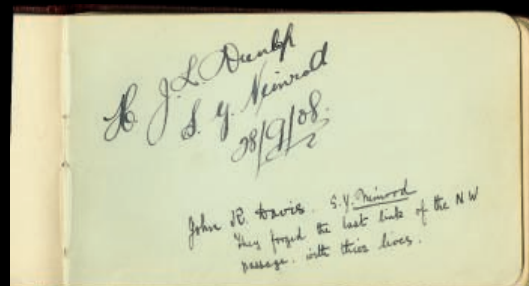 H. J. L. Dunlop
S. Y. Nimrod
28/9/08.
John K. Davis. S.Y. Nimrod
They forged the last link of the N W
passage. with their lives.